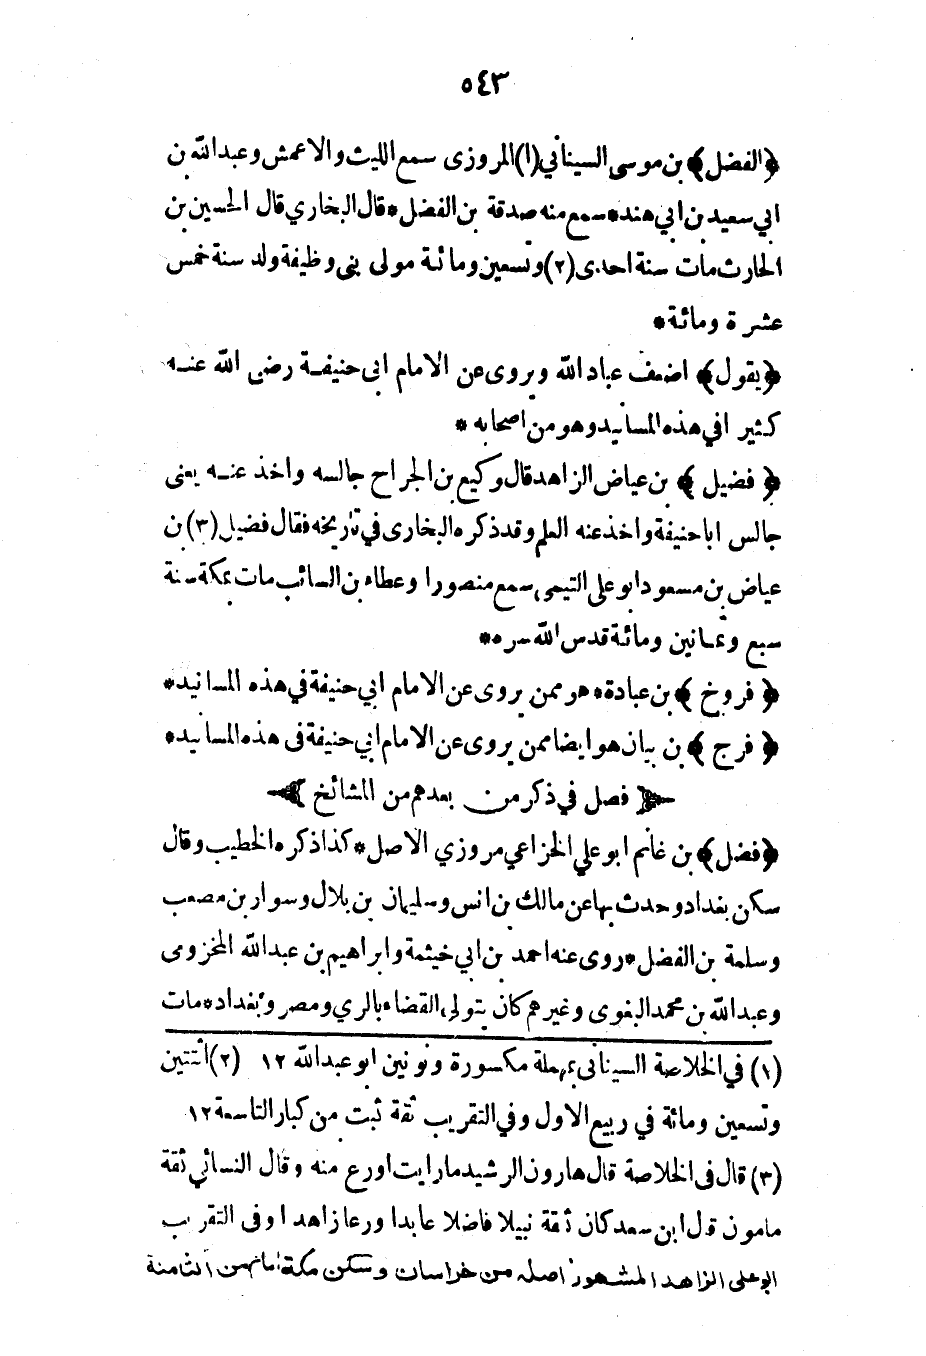 ٥٤٣
﴿الفضل﴾ بن موسى السيناني (١) المروزى سمع الليث والاعمش وعبدالله بن
ابي سعيد بن ابي هند * سمع منه صدقة بن الفضل * قال البخاري قال الحسين بن
الحارث مات سنة احدى (٢) وتسعين ومائة مولى بني وظيفة ولد سنة خمس
عشرة ومائة *
﴿يقول﴾ اضعف عباد الله ويروى عن الامام ابي حنيفة رضى الله عنه
كثيرا في هذه المسانيد وهو من اصحابه *
﴿فضيل﴾ بن عياض الزاهد قال وكيع بن الجراح جالسه واخذ عنه يعنى
جالس ابا حنيفة واخذ عنه العلم وقد ذكره البخارى في تاريخه فقال فضيل (٣) بن
عياض بن مسعود ابو على التيمى سمع منصورا وعطاء بن السائب مات بمكة سنة
سبع وثمانين ومائة قدس الله سره *
﴿فروخ﴾ بن عبادة * هو ممن يروى عن الامام ابي حنيفة في هذه المسانيد *
﴿فرج﴾ بن بيان هو ايضا ممن يروى عن الامام ابي حنيفة فى هذه المسانيد *
﴿فصل في ذكر من بعدهم من المشائخ﴾
﴿فضل﴾ بن غانم ابو علي الخزاعي مروزي الاصل * كذا ذكره الخطيب وقال
سكن بغداد وحدث بها عن مالك بن انس وسليمان بن بلال وسوار بن مصعب
وسلمة بن الفضل * روى عنه احمد بن ابي خيثمة وابراهيم بن عبدالله المخزومى
وعبدالله بن محمد البغوى وغيرهم كان يتولى القضاء بالري ومصر وبغداد * مات
(١) في الخلاصة السينانى بمهملة مكسورة ونونين ابو عبدالله ١٢ (٢) اثنتين
وتسعين ومائة في ربيع الاول وفي التقريب ثقة ثبت من كبار التاسعة ١٢
(٣) قال فى الخلاصة قال هارون الرشيد ما رايت اورع منه وقال النسائي ثقة
مامون قال ابن سعد كان ثقة نبيلا فاضلا عابدا ورعا زاهدا وفى التقريب
ابو على الزاهد المشهور اصله من خراسان وسكن مكة من الثامنة